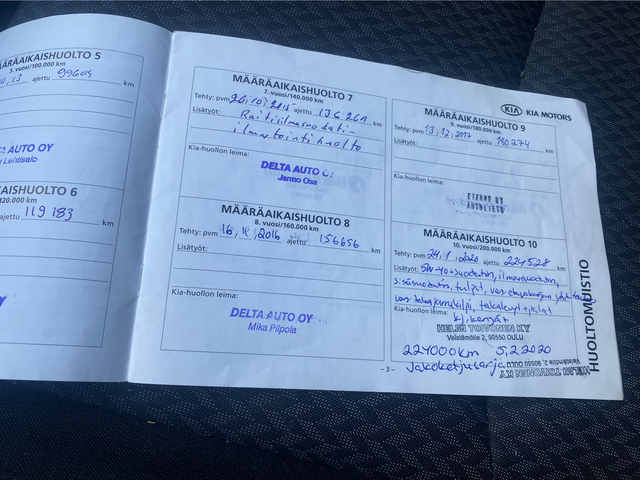 MÄÄRÄAIKAISHUOLTO 5
5. vuosi/100.000 km
ajettu 99605 km
AUTO OY
i Lehtisalo
AISHUOLTO 6
120.000 km
ajettu 119 183 km
MÄÄRÄAIKAISHUOLTO 7
7. vuosi/140.000 km
Tehty: pvm ajettu km
Lisätyöt: Raitisilmasuodatin
ilmastointihuolto
Kia-huollon leima:
DELTA AUTO
Jarmo Osa
MÄÄRÄAIKAISHUOLTO 8
8. vuosi/160.000 km
Tehty: pvm 2016 ajettu 156656 km
Lisätyöt:
Kia-huollon leima:
DELTA AUTO OY
Mika Pilpola
KIA KIA MOTORS
MÄÄRÄAIKAISHUOLTO 9
9. vuosi/180.000 km
Tehty: pvm 13,12,2017 ajettu 180274 km
Lisätyöt:
Kia-huollon leima:
MÄÄRÄAIKAISHUOLTO 10
10. vuosi/200.000 km
Tehty: pvm 24,1,2020 ajettu 224528 km
Lisätyöt: ilmansuodatin,
tulpat,
Kia-huollon leima:
HELMI TOIVONEN KY
Veistämötie 2, 90550 OULU
224000km 5.2.2020
Jakoketjusarja
HELMI TOIVONEN KY
Veistämötie 2, 90550 OULU
-3-
HUOLTOMUISTIO